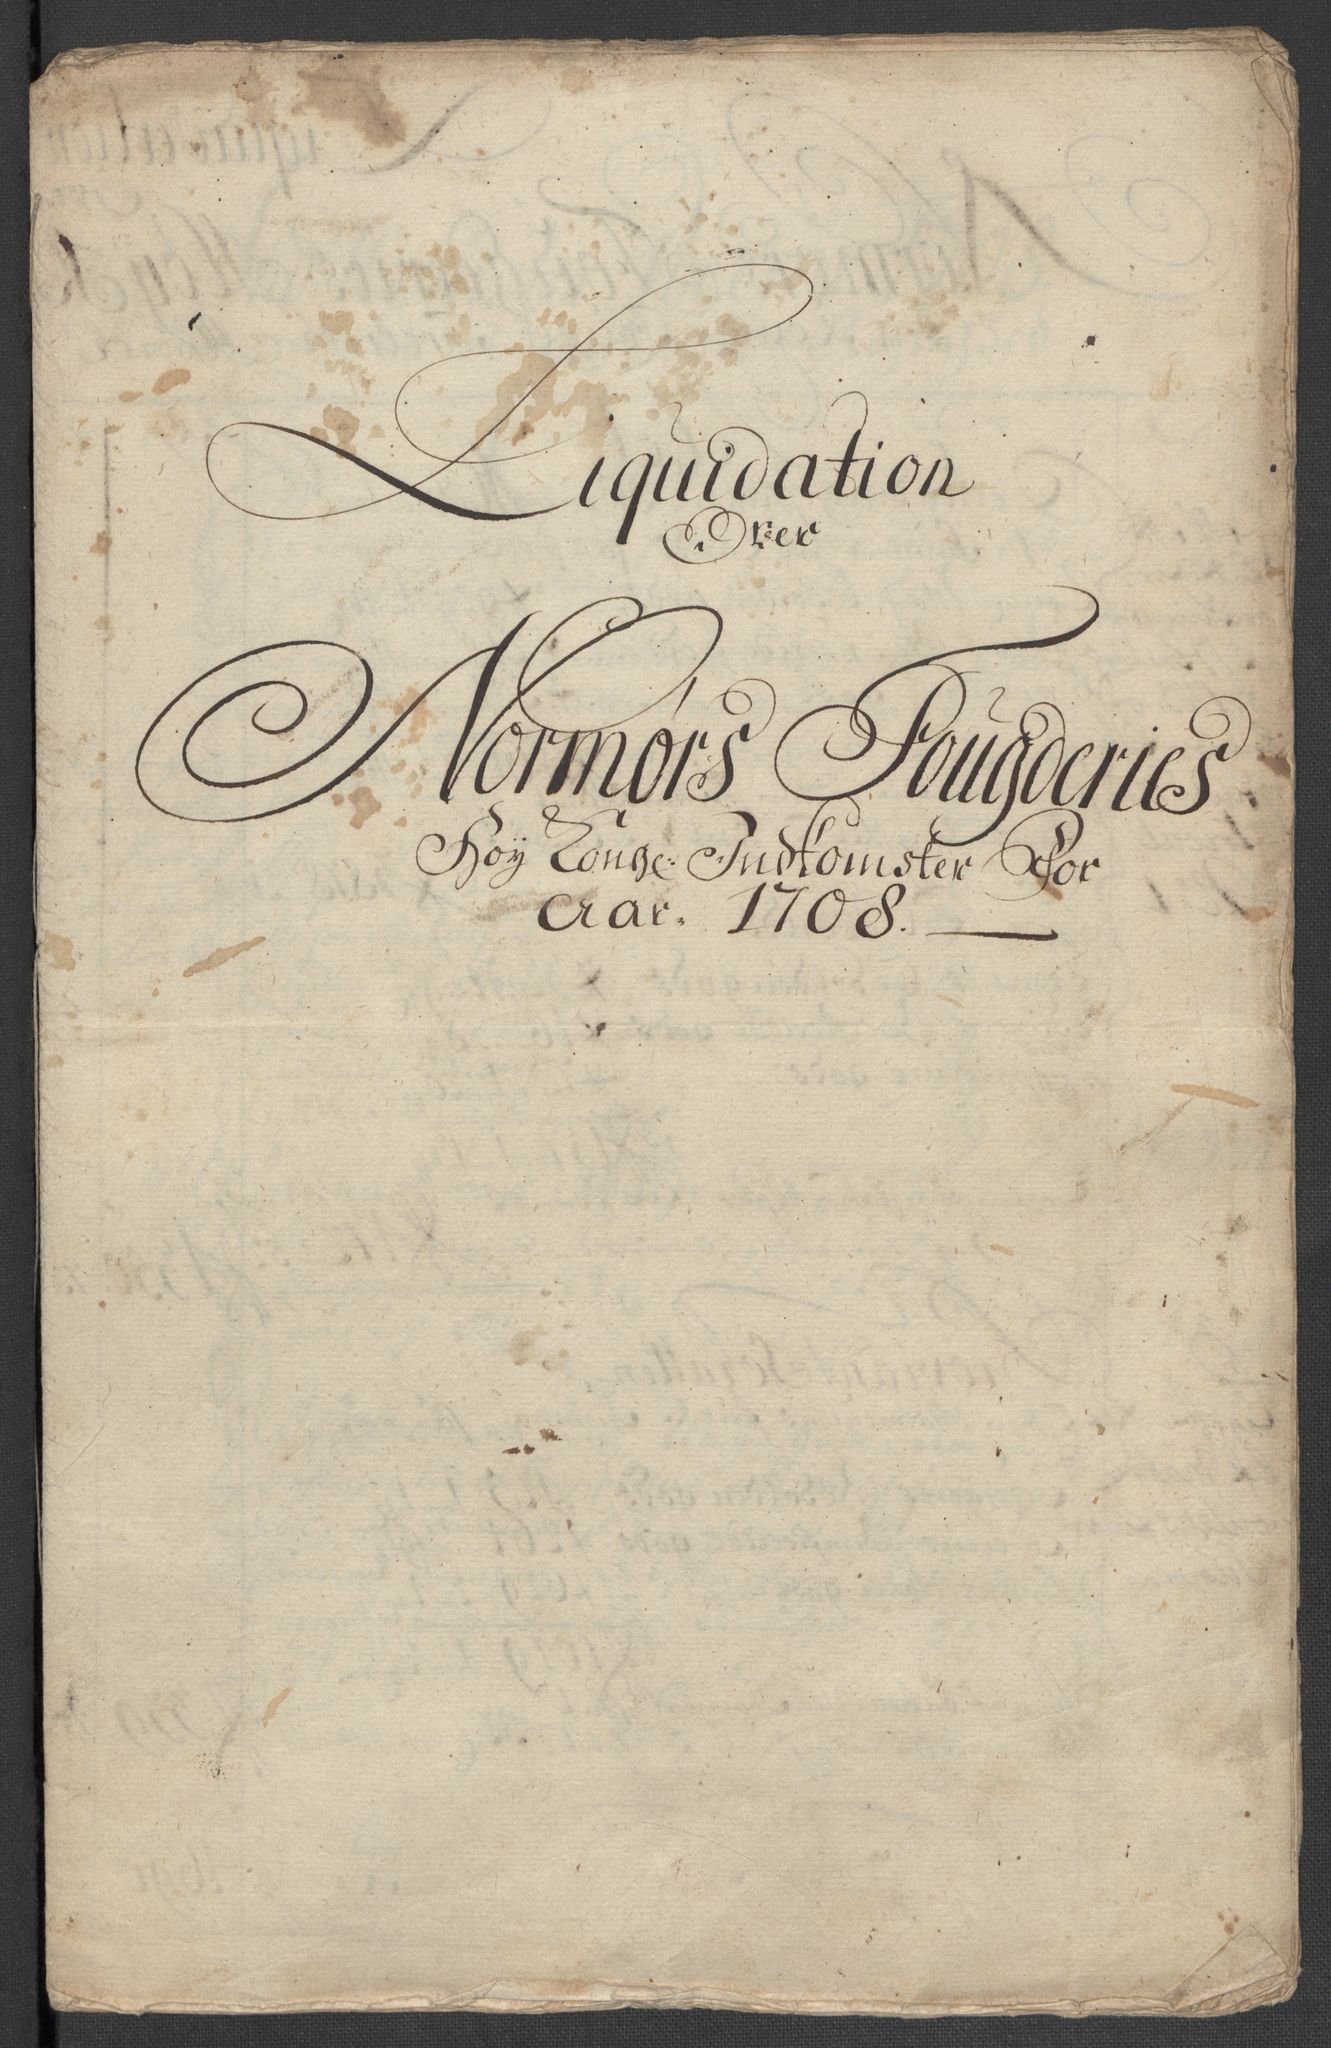 Liquidation
Over
Normørs Fougderies
Høÿ Konge: Indkomster For
Aar. 1708.